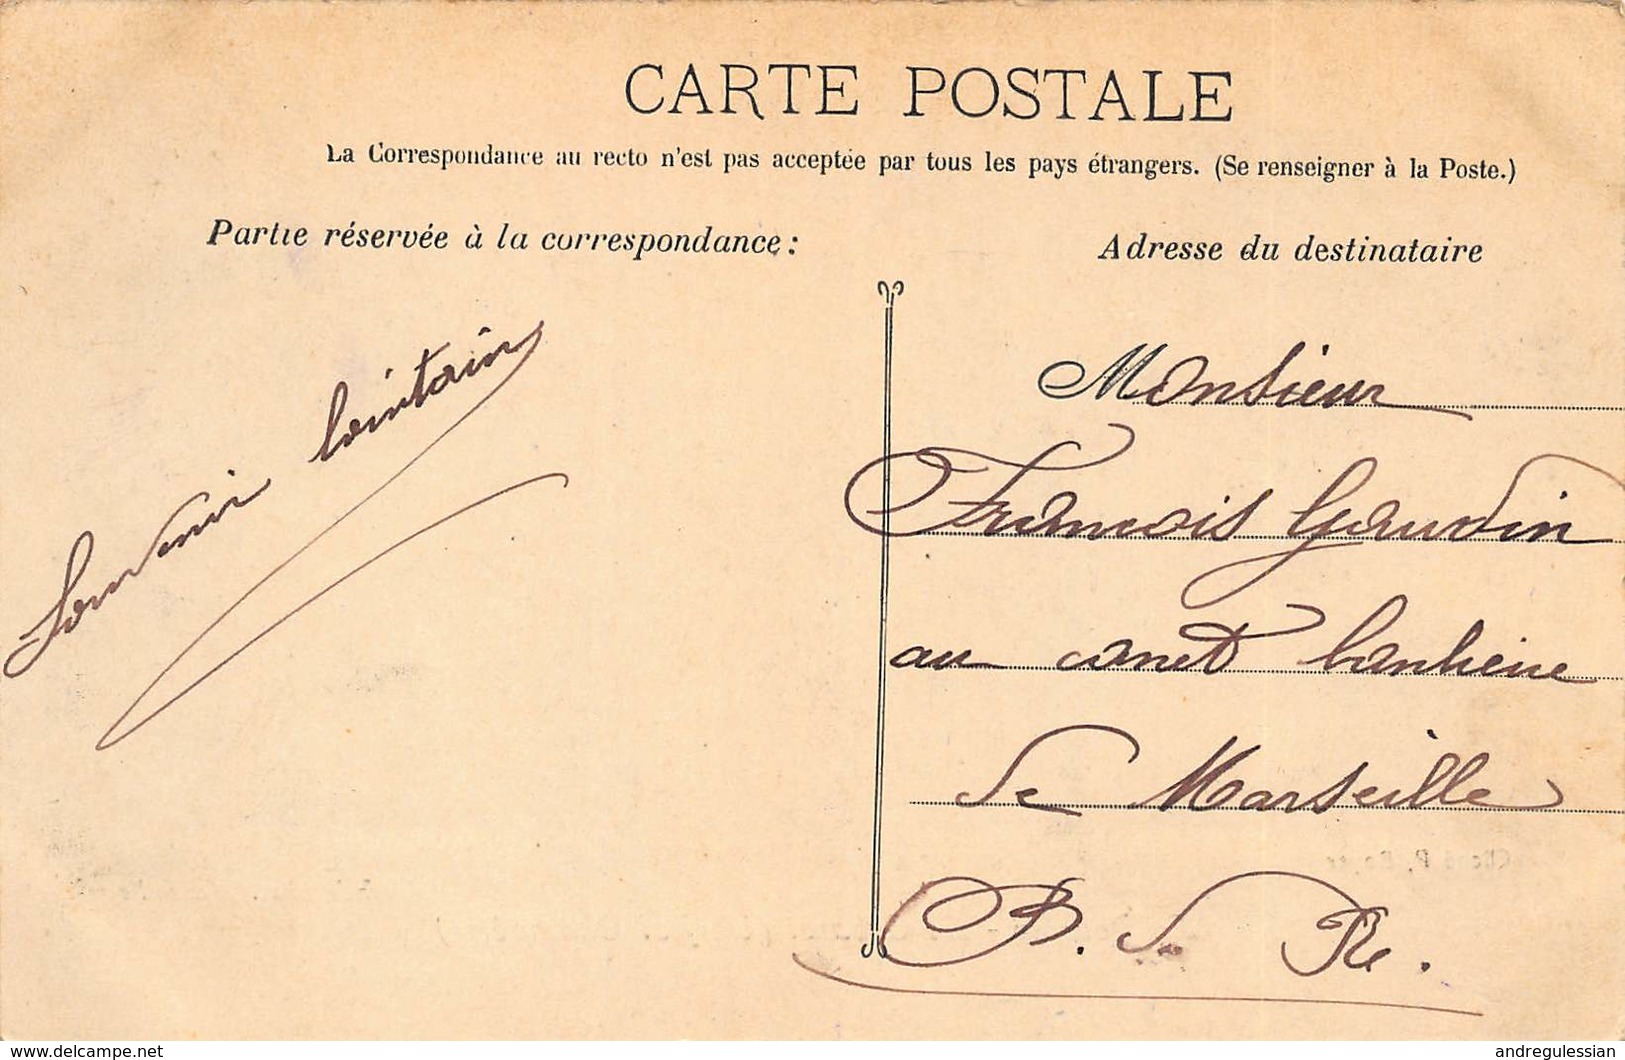 CARTE POSTALE
La Correspondance au recto n'est pas acceptée par tous les pays étrangers. (Se renseigner à la Poste.)
Partie réservée à la correspondance :
Adresse du destinataire
Souvenir lointain
Monsieur
François Gaudin
au canet banlieue
de Marseille
B. de Rh.
www.delcampe.net
andregulessian